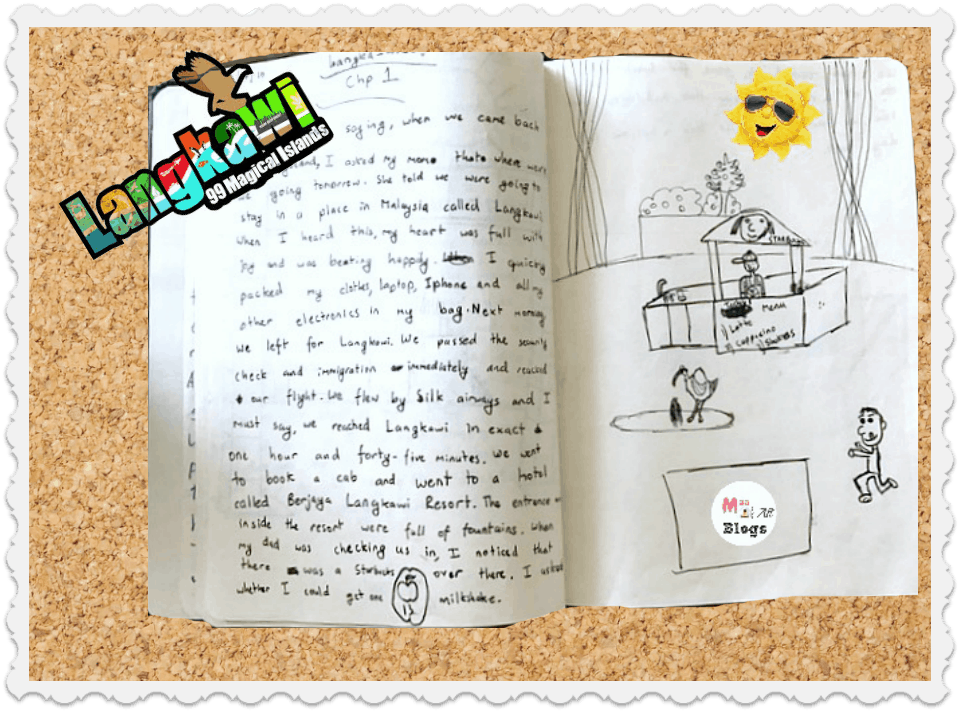 Langkawi
99 Magical Islands
in
Chp 1
saying, when we came back
I asked my mom where were
we going tomorrow. She told we were going to
stay in a place in Malaysia called Langkawi
When I heard this, my heart was full with
joy and was beating happily. I quickly
packed my clothes, laptop, Iphone and all my
other electronics in my bag. Next morning
we left for Langkawi. We passed the security
check and immigration immediately and reached
our flight. We flew by Silk airways and I
must say, we reached Langkawi in exact
one hour and forty-five minutes. We went
to book a cab and went to a hotel
called Berjaya Langkawi Resort. The entrance
inside the resort were full of fountains. When
my dad was checking us in, I noticed that
there was a Starbucks over there. I asked
whether I could get one milkshake.
Menu
1) Latte
2) Cappucino
3) Shakes
Blogs